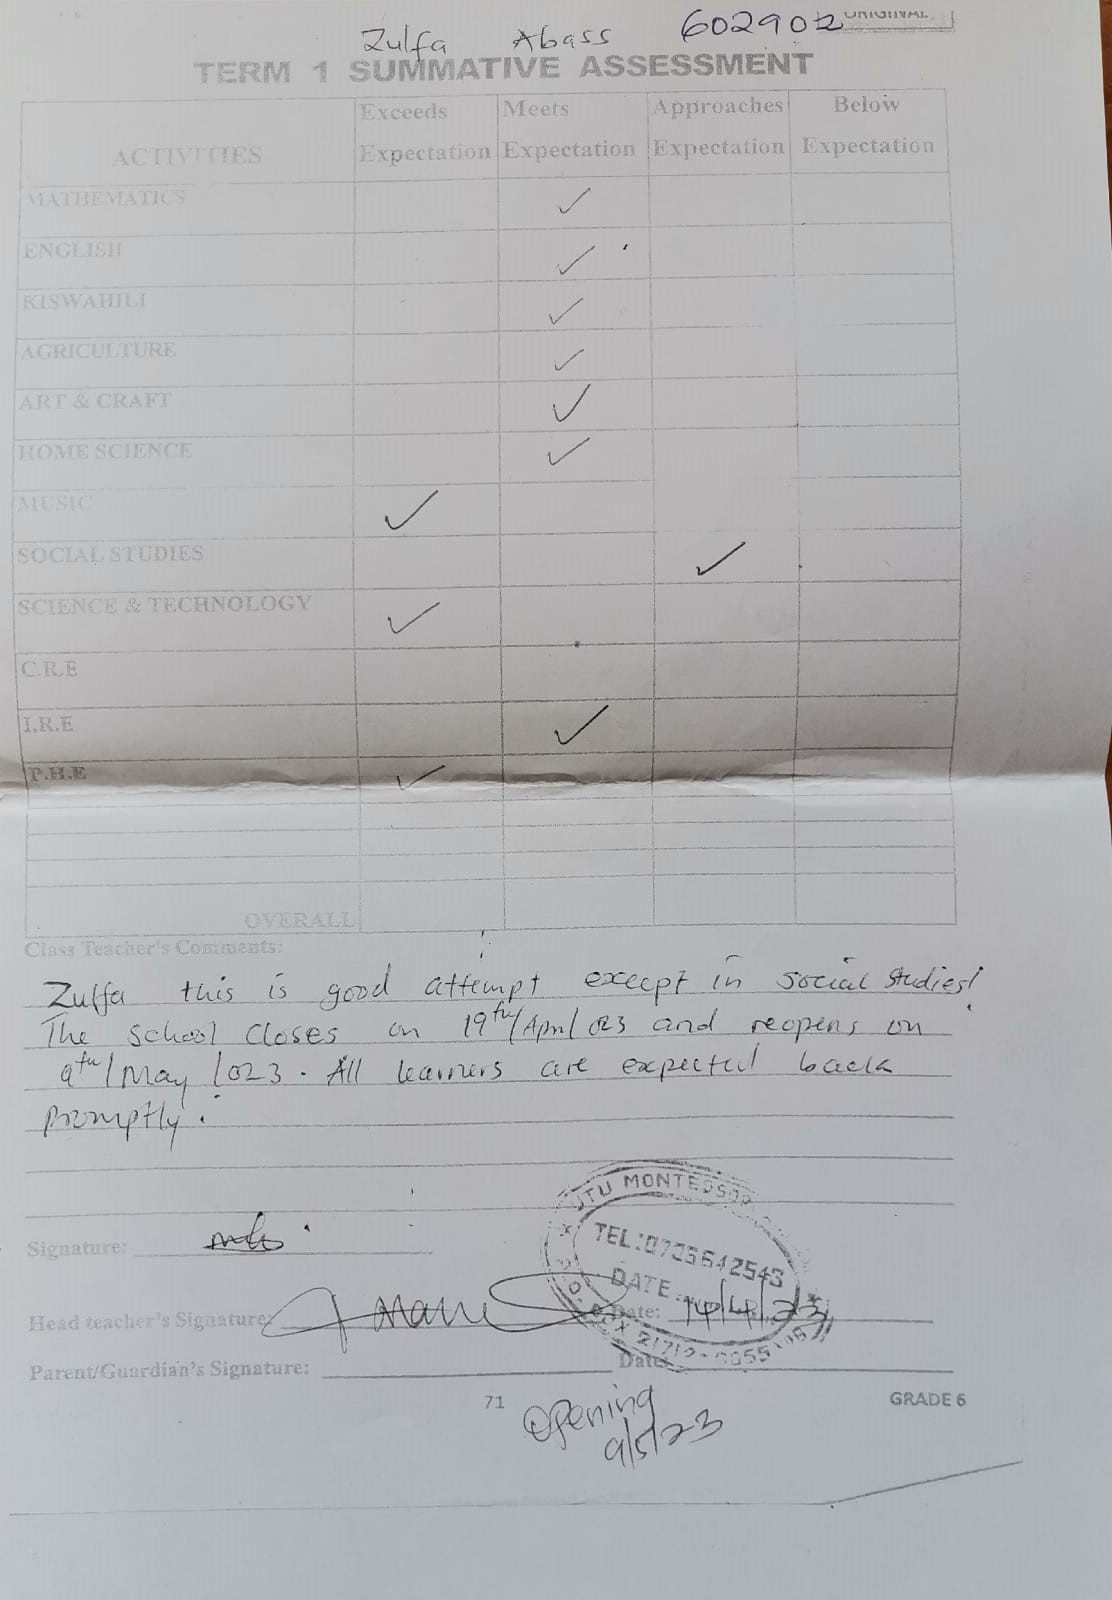 Zulfa Abass 602902 ORIGINAL
TERM 1 SUMMATIVE ASSESSMENT
ACTIVITIES Exceeds Expectation Meets Expectation Approaches Expectation Below Expectation
MATHEMATICS ✓
ENGLISH ✓
KISWAHILI ✓
AGRICULTURE ✓
ART & CRAFT ✓
HOME SCIENCE ✓
MUSIC ✓
SOCIAL STUDIES ✓
SCIENCE & TECHNOLOGY ✓
C.R.E
I.R.E ✓
P.H.E ✓
OVERALL
Class Teacher's Comments:
Zulfa this is good attempt except in social studies!
The school closes on 19th/April/023 and reopens on
9th/May/023. All learners are expected back
promptly.
UTU MONTESSORI
TEL:0725642543
DATE
Signature:
Head teacher's Signature: Date: 14/4/23
Parent/Guardian's Signature: Date:
71 GRADE 6
Opening
9/5/23